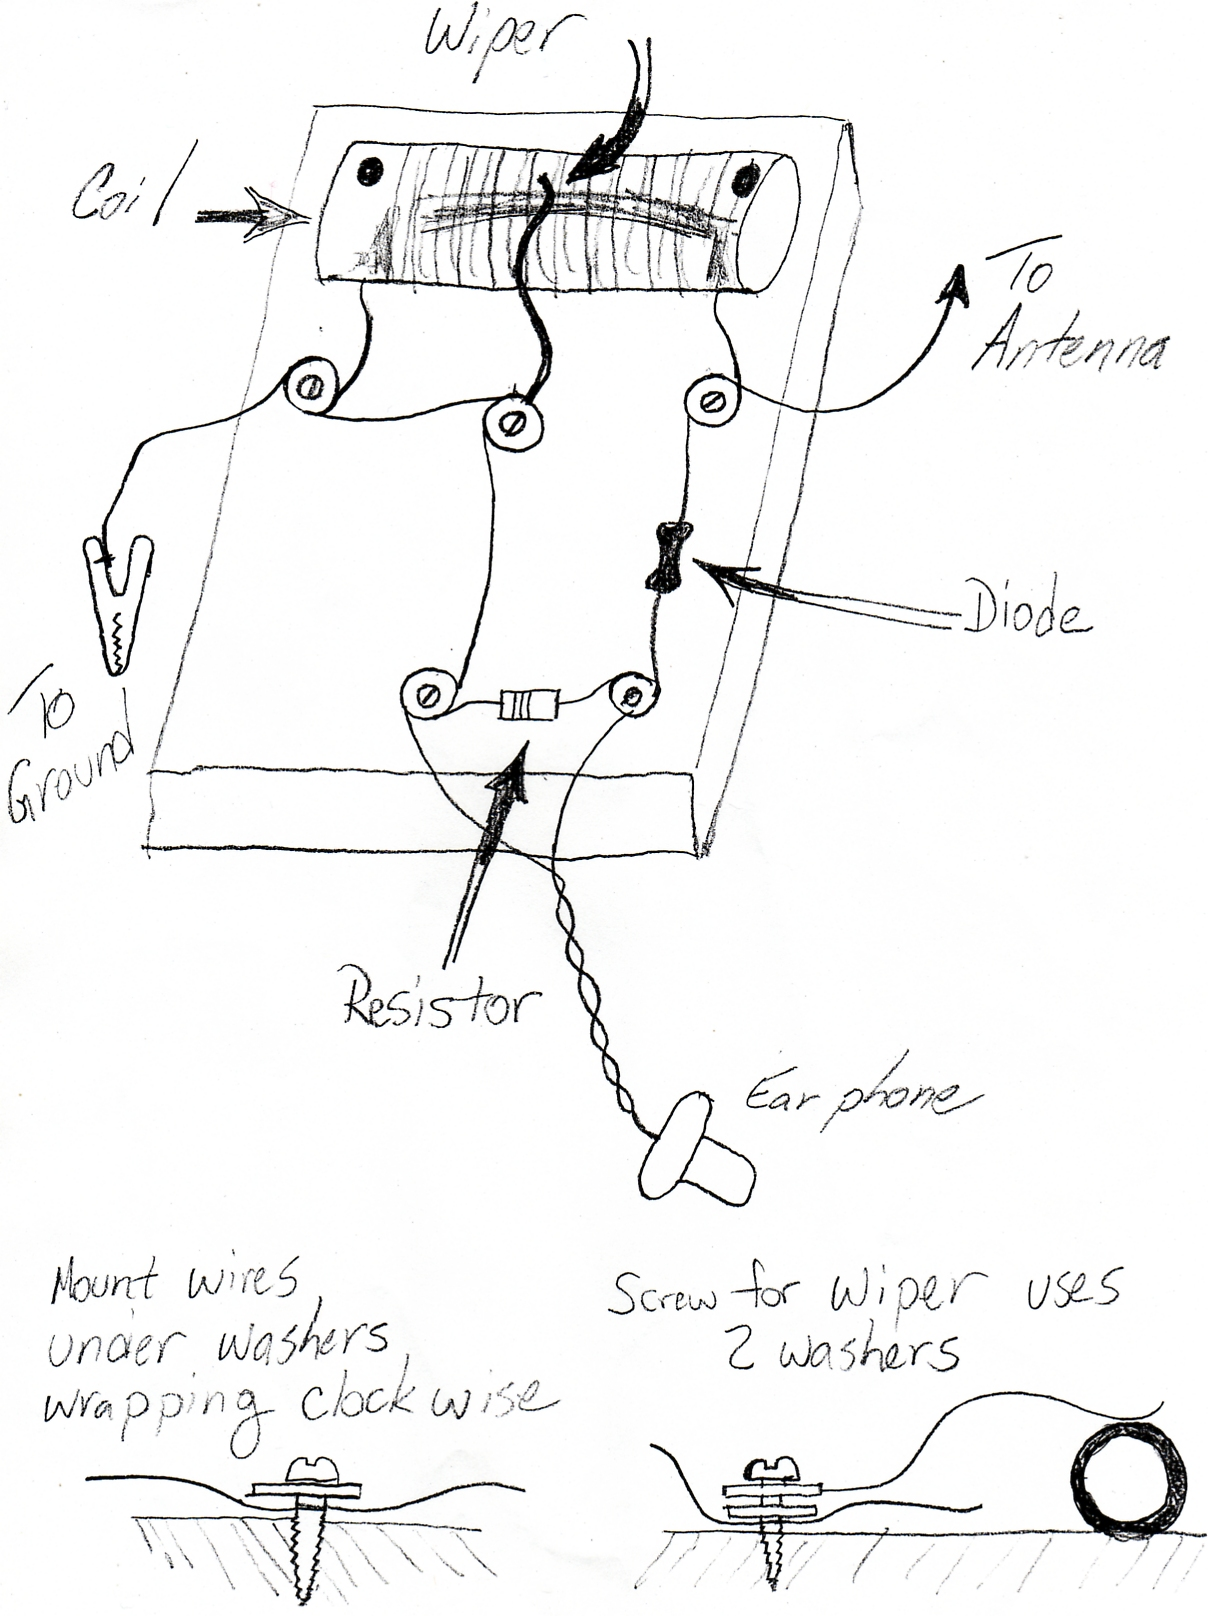 Wiper
Coil
To
Antenna
Diode
To
Ground
Resistor
Ear phone
Mount wires,
under washers,
wrapping clockwise
Screw for Wiper uses
2 washers